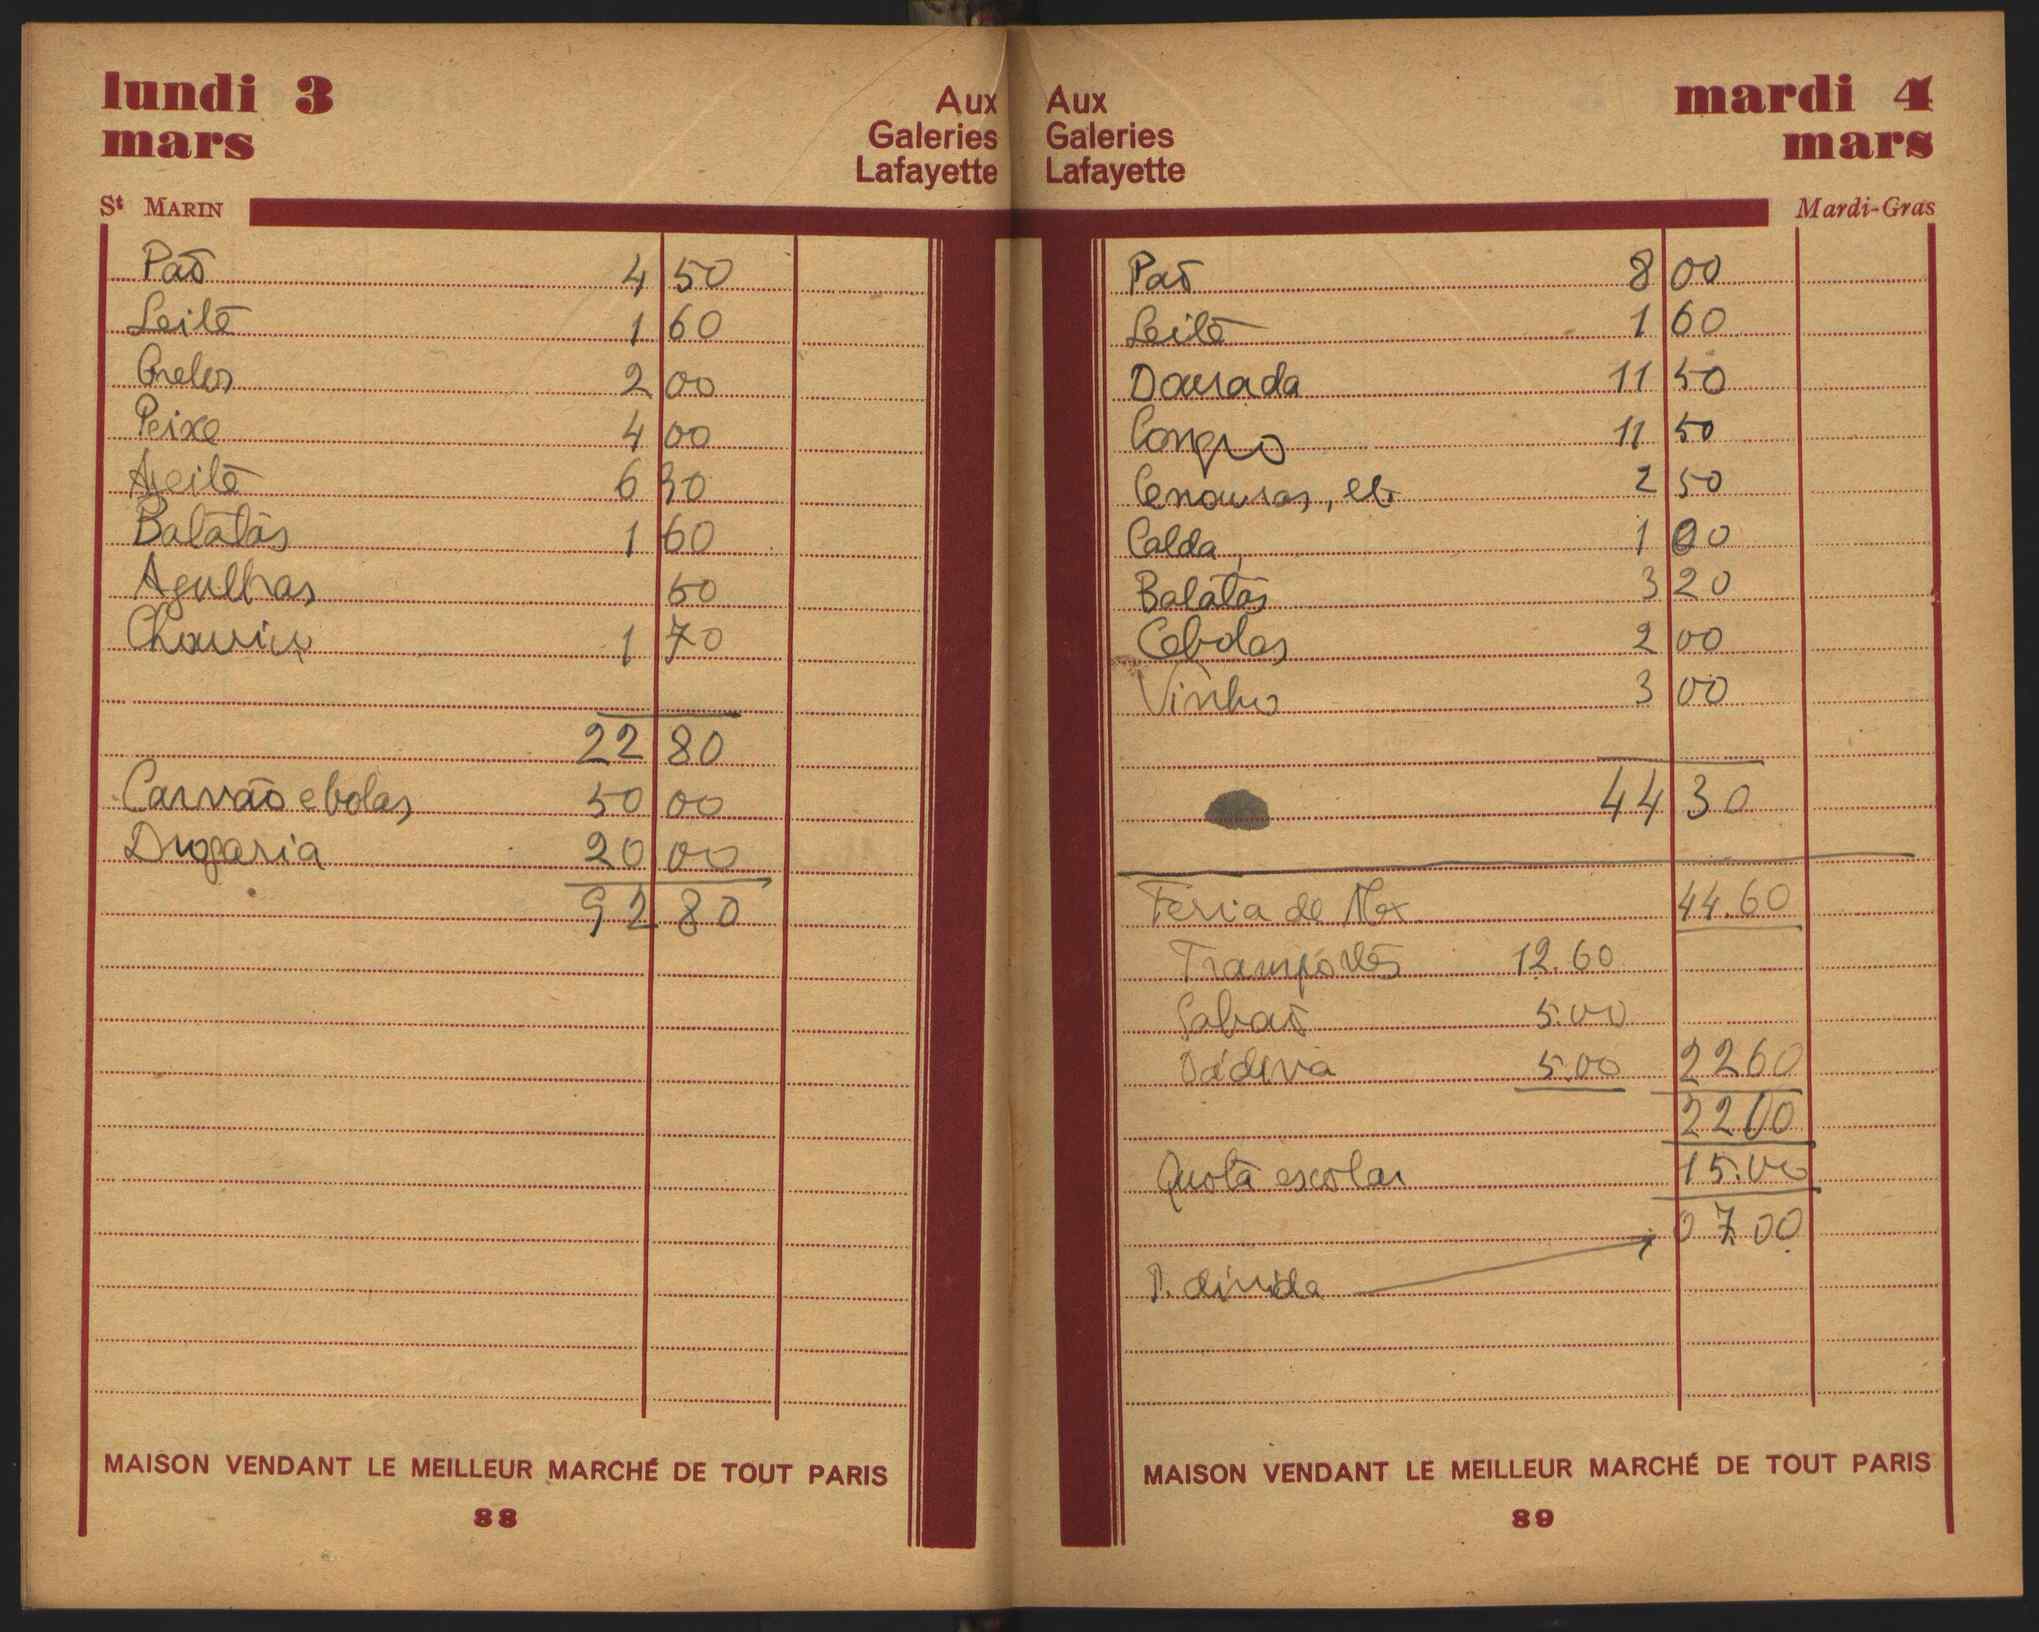 lundi 3
mars
Aux
Galeries
Lafayette
St MARIN
Paõ 4 50
Leite 1 60
Grelos 2 00
Peixe 4 00
Azeite 6 30
Batatas 1 60
Agulhas 50
Chouriço 1 70
22 80
Carvão e bolas 50 00
Drogaria 20 00
92 80
MAISON VENDANT LE MEILLEUR MARCHÉ DE TOUT PARIS
88
Aux
Galeries
Lafayette
mardi 4
mars
Mardi-Gras
Paõ 8 00
Leite 1 60
Dourada 11 50
Congro 11 50
Cenouras, etc. 2 50
Calda 1 00
Batatas 3 20
Cebolas 2 00
Vinho 3 00
44 30
Feria de 44.60
Transportes 12.60
Sabaõ 5.00
Dádiva 5.00 22 60
22 00
Quota escolar 15.00
07 00
D. divida
MAISON VENDANT LE MEILLEUR MARCHÉ DE TOUT PARIS
89